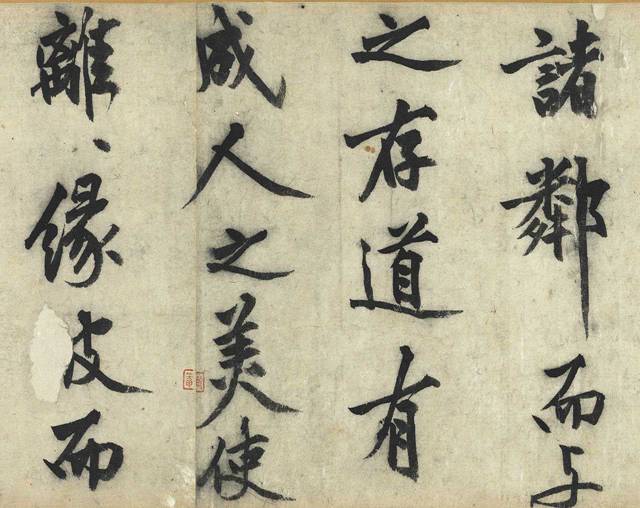 諸鄰而与
之存道有有
成人之美使
離〻緣皮而